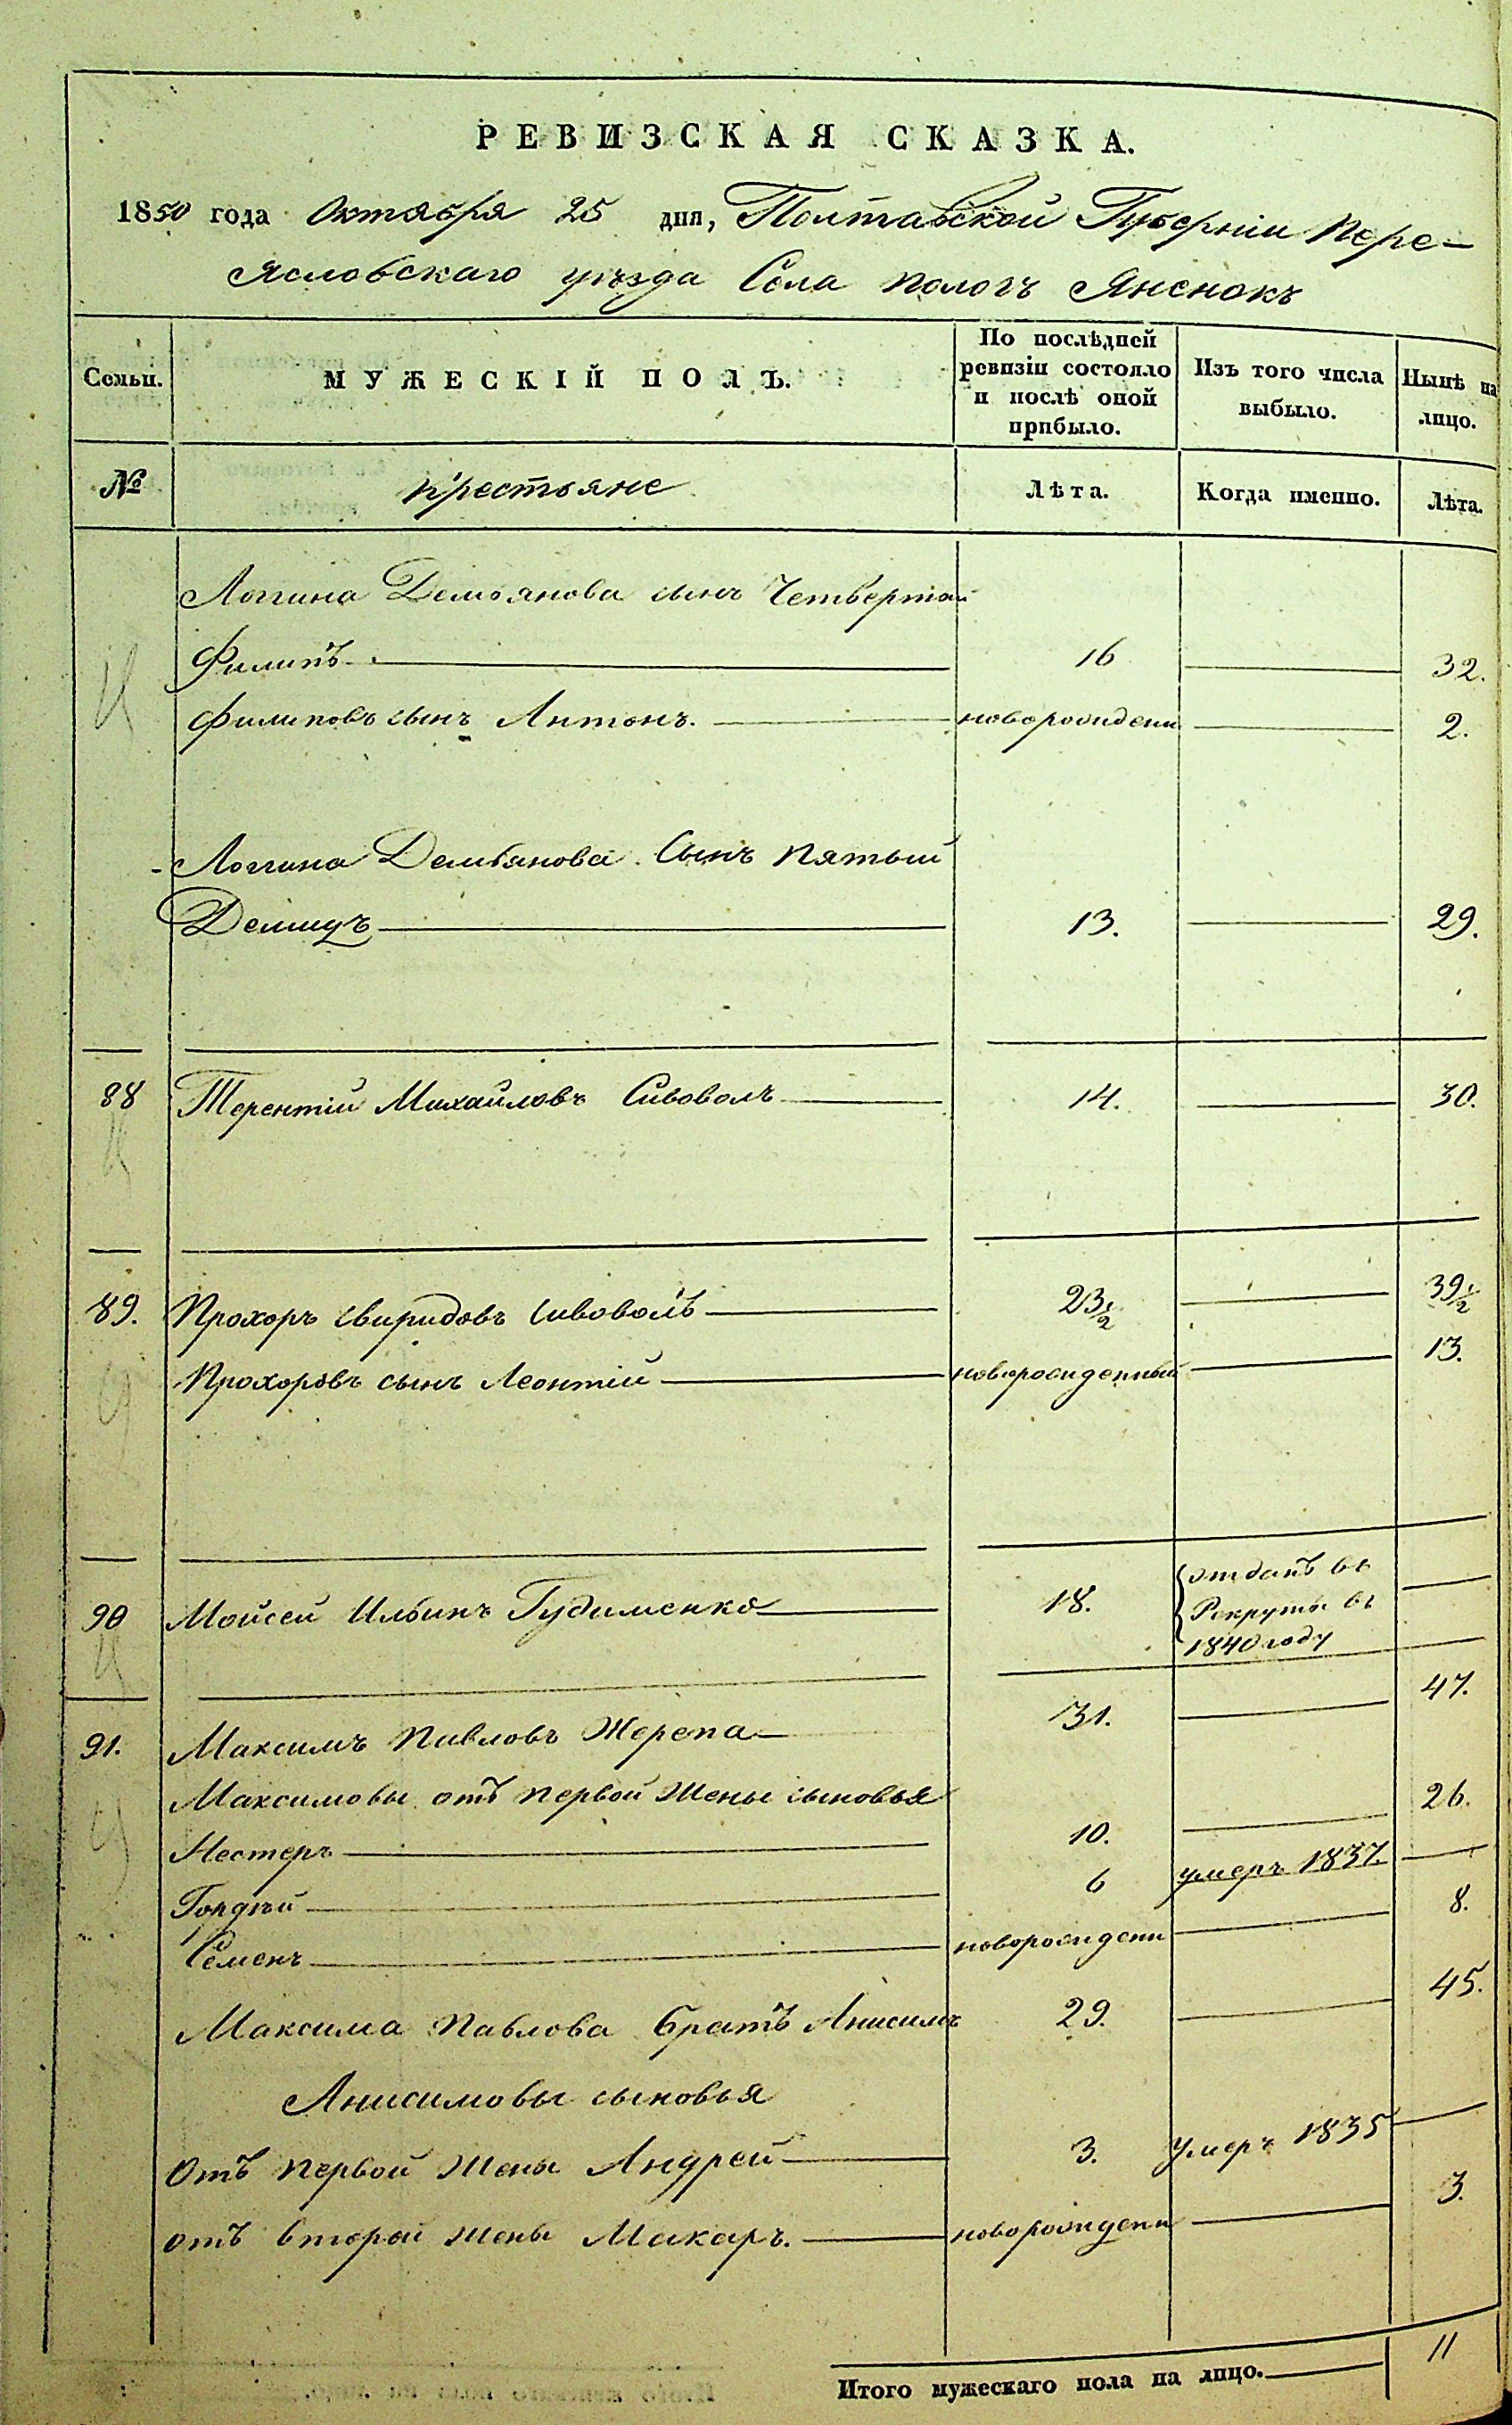 РЕВИЗСКАЯ СКАЗКА.
1850 года Октября 25 дня, Полтавской Губерніи Пере-
ясловскаго уѣзда Села Пологъ Яненокъ
Семьи.
МУЖЕСКІЙ ПОЛЪ.
По послѣдней
ревизіи состояло
и послѣ оной
прибыло.
Изъ того числа
выбыло.
Нынѣ на
лицо.
№
Крестьяне
Лѣта.
Когда именно.
Лѣта.
Логгина Демьянова сынъ Четвертой
Филипъ 16 32.
Филиповъ сынъ Антонъ. новорожденн 2.
Логгина Демьянова Сынъ Пятый
Демидъ 13. 29.
88 Терентій Михайловъ Сивоволъ 14. 30.
89. Прохоръ Свиридовъ Сивоволъ 23½ 39½
Прохоровъ сынъ Леонтій новорожденный 13.
90 Мойсей Ильинъ Гудименко 18. отданъ въ
Рекруты въ
1840 году
91. Максимъ Павловъ Жерепа 31. 47.
Максимовы отъ первой Жены сыновья
Нестеръ 10. 26.
Гордѣй 6 умеръ 1837.
Семенъ новорожденн 8.
Максима Павлова братъ Анисимъ 29. 45.
Анисимовы сыновья
Отъ первой Жены Андрей 3. Умеръ 1835
отъ второй жены Макаръ. новорожденн 3.
Итого мужескаго пола на лицо. 11